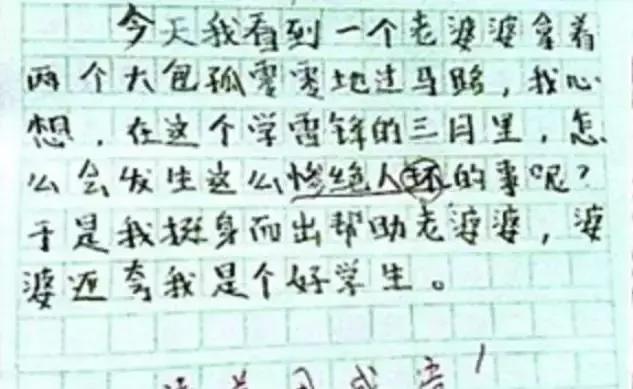 今天我看到一个老婆婆拿着
两个大包孤零零地过马路，我心
想，在这个学雷锋的三月里，怎
么会发生这么惨绝人环的事呢？
于是我挺身而出帮助老婆婆，婆
婆迈夸我是个好学生。